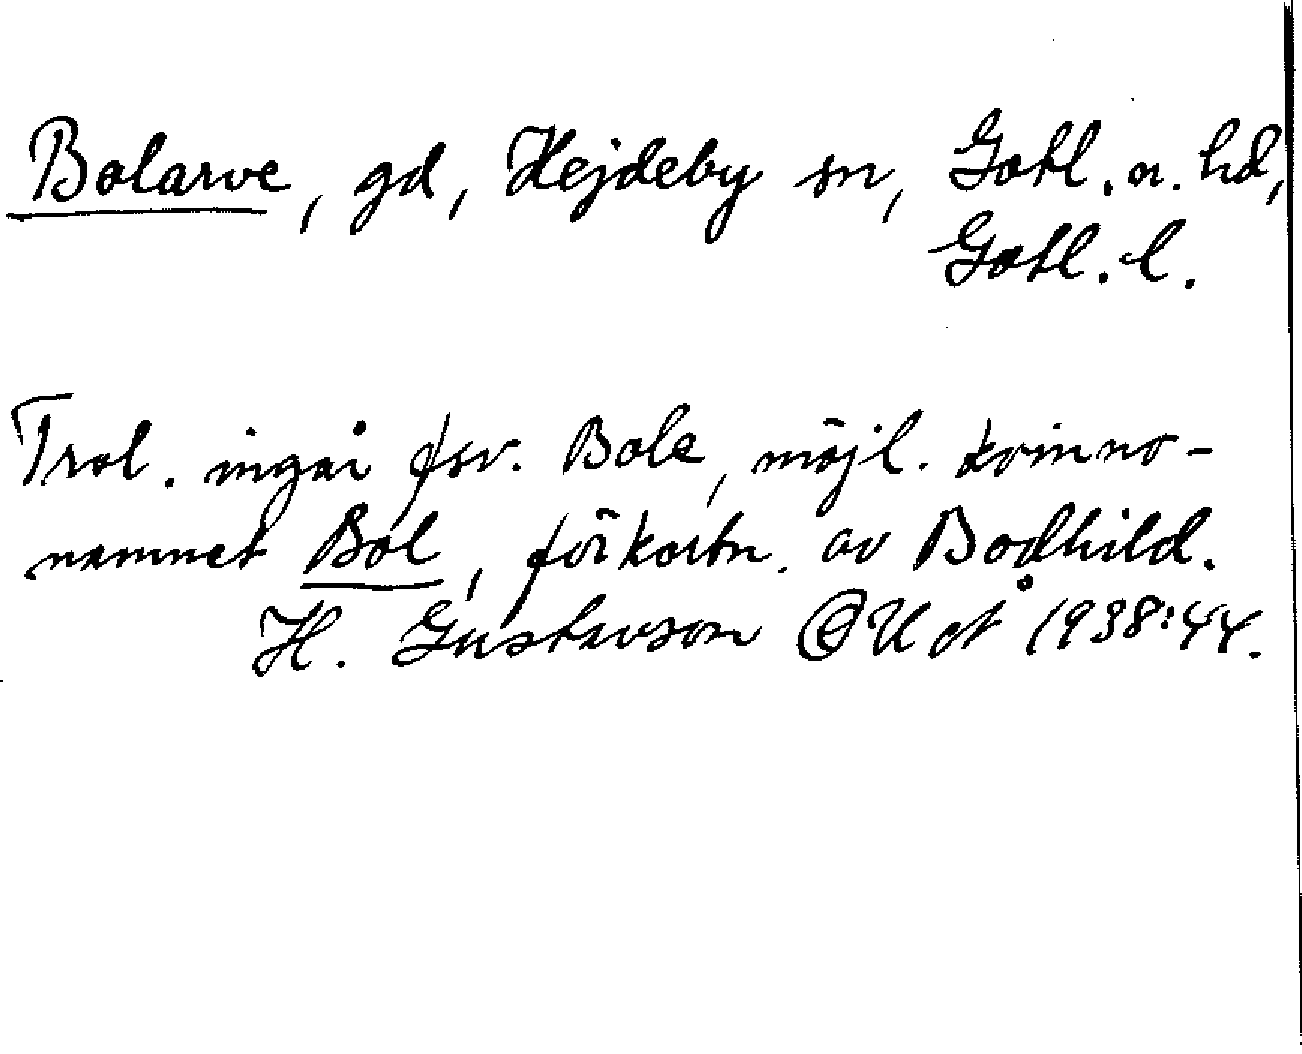 Bolarve, gd, Hejdeby sn, Gotl. n. hd,
Gotl. l.
Trol. ingår fsv. Bole, möjl. kvinno-
namnet Bol, förkortn. av Bodhild.
H. Gustavson GU åt 1938:44.